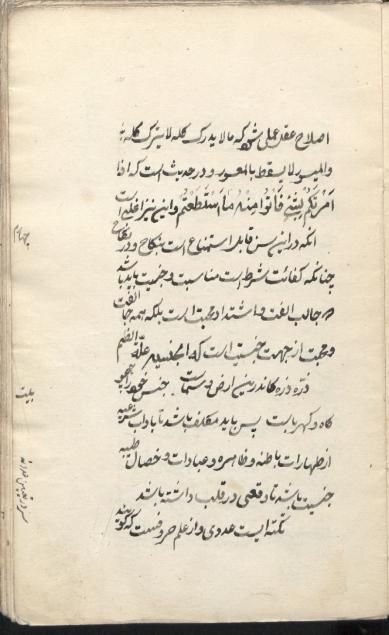 اصلاح عقل عملی شود که مالا یدرک کله لا یترک کله
والمیسور لا یسقط بالمعسور و در حدیث است که اذا
امرتکم بشیء فأتوا منه ما استطعتم و این نیز است
آنکه در این سن قابل استمتاع است بنکاح و در نکاح
چنانکه کفائت شرط است مناسبت و جنسیت باید باشد
که جالب الفت و اشتداد محبت است بلکه همه جا الفت
و محبت از جهت جنسیت است که الجنسیه علة الضم
ذره ذره کاندرین ارض و سماست جنس خود را همچو
کاه و کهرباست پس باید مکلف باشد تا باداب شرعیه
از طهارات باطنه و ظاهره و عبادات و خصال طیبه
جنسیت باشد تا وقعی در قلب داشته باشد
نکته ایست عددی و از علم حروفست که گویند
چهارم
بیت